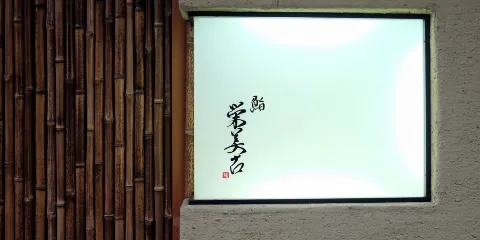 鮨
栄美古